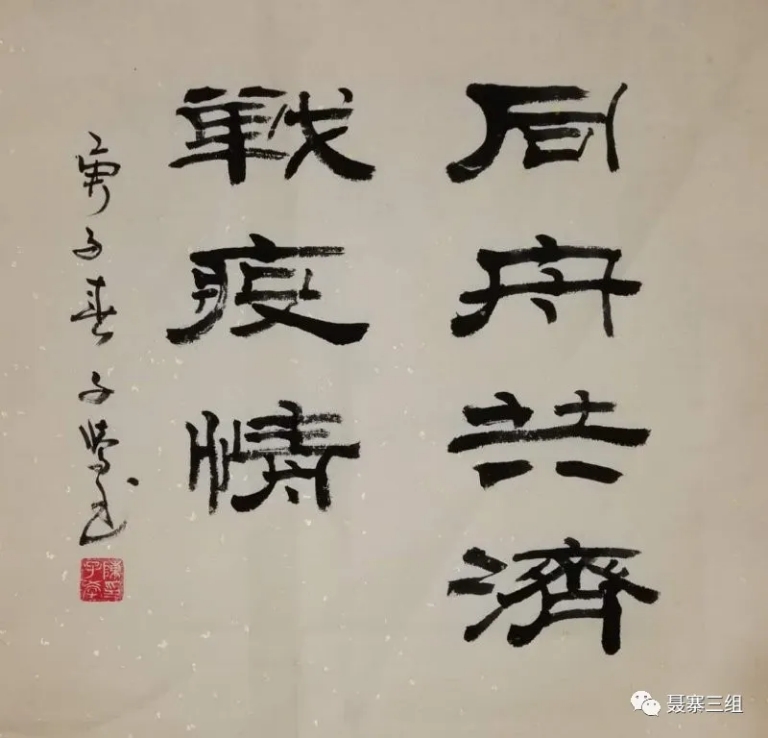 同舟共濟
戰疫情
庚子春子峰書
聂寨三组